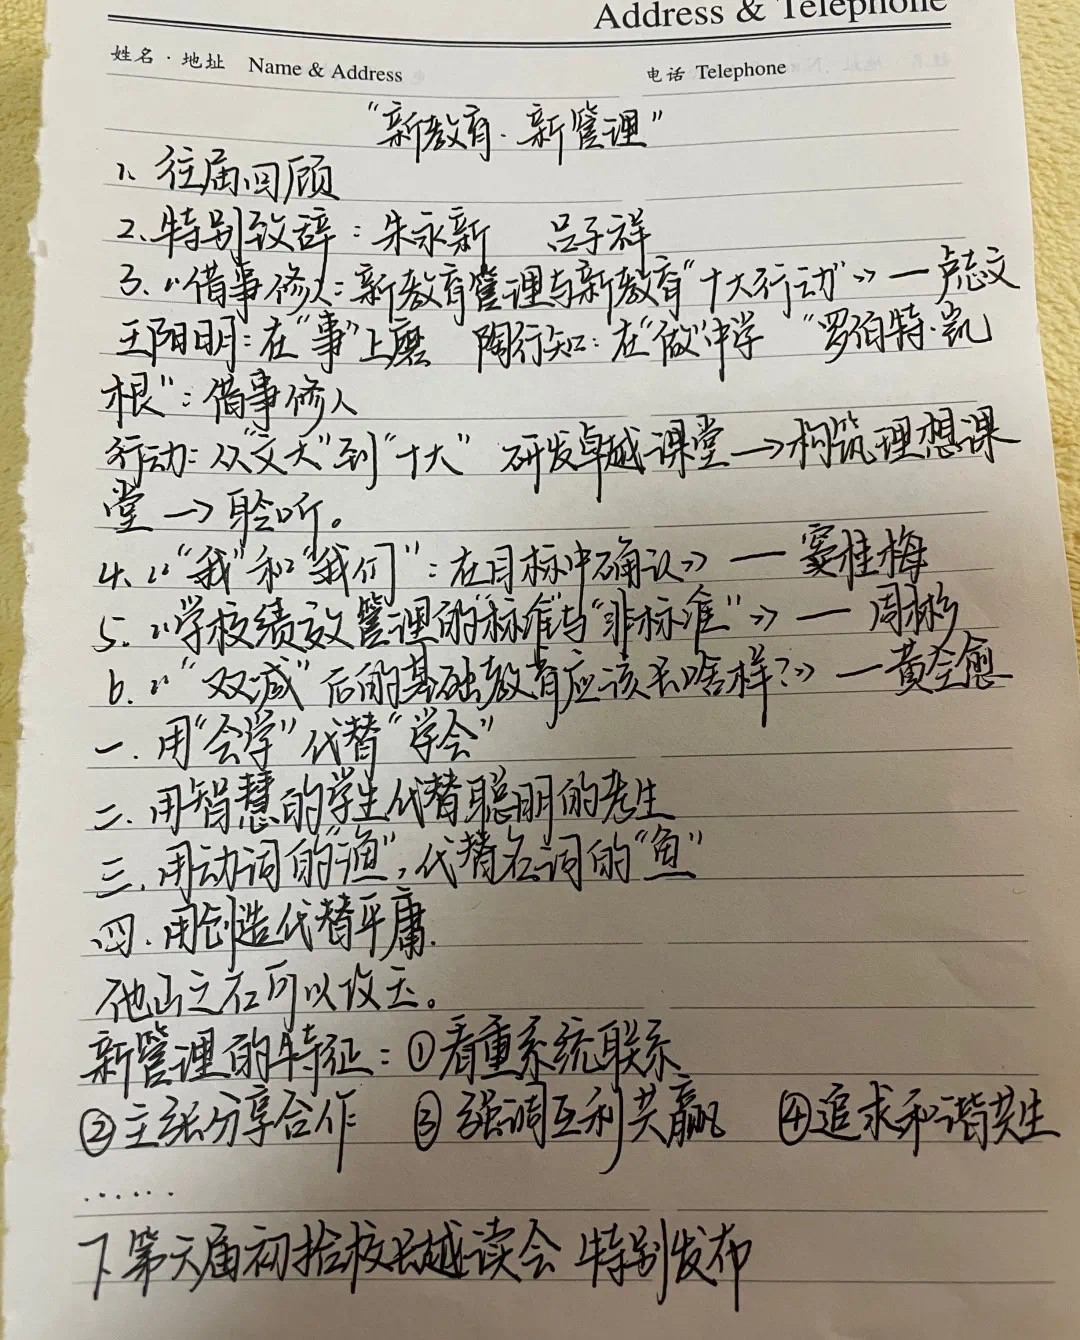 Address & Telephone
姓名·地址 Name & Address 电话 Telephone
“新教育·新管理”
1、往届回顾
2、特别致辞：朱永新 吕子祥
3、《借事修人：新教育管理与新教育“十大行动”》—卢志文
王阳明：在“事”上磨 陶行知：在“做”中学 “罗伯特·凯
根”：借事修人
行动：从“六大”到“十大” 研发卓越课堂→构筑理想课
堂→聆听。
4、《“我”和“我们”：在目标中确认》—窦桂梅
5、《学校绩效管理的“标准”与“非标准”》—周彬
6、《“双减”后的基础教育应该长啥样？》—黄全愈
一、用“会学”代替“学会”
二、用智慧的学生代替聪明的考生
三、用动词的“渔”，代替名词的“鱼”
四、用创造代替平庸.
他山之石可以攻玉。
新管理的特征：①看重系统联系
②主张分享合作 ③强调互利共赢 ④追求和谐共生
……
下第六届初拾校长越读会 特别发布